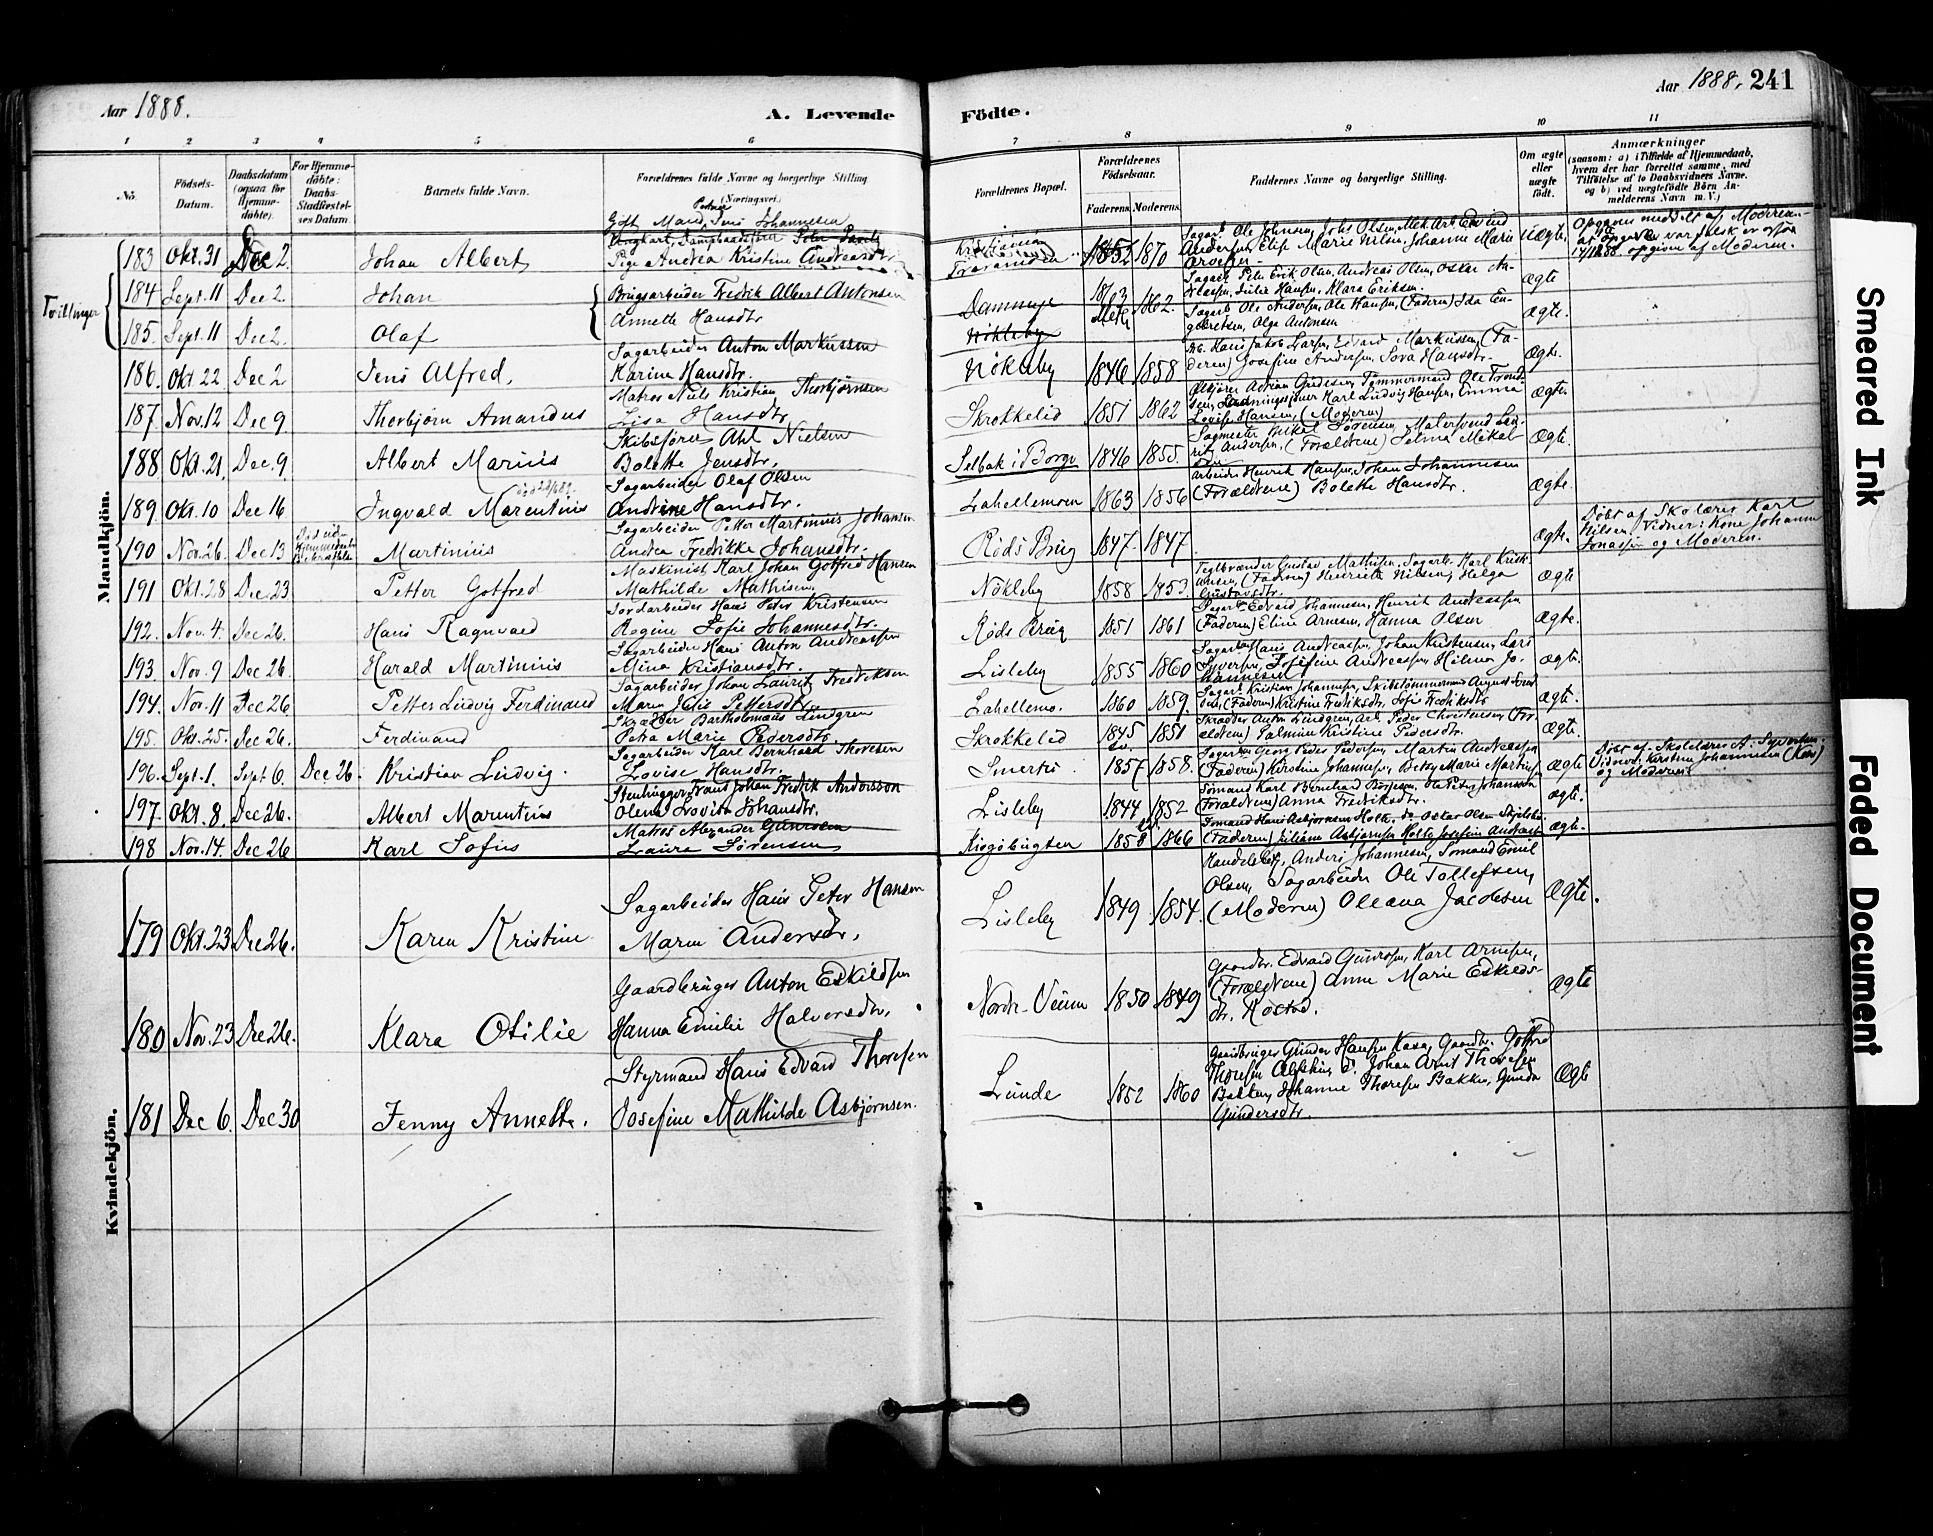 Aar 1888.
A. Levende
Födte.
Aar 1888. 241
1 2 3 4 5 6 7 8 9 10 11
No.
Födsels-Datum.
Daabsdatum (ogsaa for Hjemmedöbte).
For Hjemmedöbte: Daabs-Stadfæstelses Datum.
Barnets fulde Navn.
Forældrenes fulde Navne og borgerlige Stilling (Næringsvei).
Forældrenes Bopæl.
Forældrenes Födselsaar.
Faderens. Moderens.
Faddernes Navne og borgerlige Stilling.
Om ægte eller uægte födt.
Anmærkninger
(saasom: a) i Tilfælde af Hjemmedaab, hvem der har forrettet samme, med Tilföielse af to Daabsvidners Navne, og b) ved uægtefødte Börn Anmelderens Navn m. V.)
Mandkjön.
Tvillinger
183 Okt. 31 Dec 2 Johan Albert
Gift Mand Jens Johannesen
Pige Andrea Kristine Andreasdtr
1870
Andersen, Elise Marie Nilsen, Johanne Marie
uægte.
184 Sept. 11 Dec 2 Johan
Brugsarbeider Fredrik Albert Antonsen
Annette Hansdtr
Dammyr 1862.
Klara Eriksen.
ægte
185. Sept. 11 Dec 2. Olaf
Nökleby
Olga Antonsen
ægte.
186. Okt 22 Dec 2 Jens Alfred.
Sagarbeider Anton Markussen
Karine Hansdtr.
Nökleby 1846 1858
Arb. Hans Jakob Larsen, Edvard Markussen, (Faderen) Josefine Andersen, Hansdtr.
ægte.
187. Nov. 12 Dec 9 Thorbjörn Amandus
Matros Niels Kristian Thorbjörnsen
Lisa Hansdtr
Skrokkelid 1851 1862
Karl Ludvig Hansen, Emma Lovise Hansen, (Moderen)
ægte.
188. Okt. 21. Dec. 9. Albert Marius
Skibsförer Abl Nielsen
Bolette Jensdtr.
Selbak i Borge 1846 1855.
Andersen, (Forældrene) Selma Mikal
ægte.
189. Okt. 10 Dec 16 Ingvald Marentius
Sagarbeider Olaf Olsen
Andrine Hansdtr.
Lahellemoen 1863 1856
Arbeider Henrik Hansen, Johan Johannesen
(Forældrene) Bolette Hansdtr.
ægte.
190 Nov. 26. Dec 13 Martinius
Sagarbeider Petter Martinius Johansen
Andrea Fredrikke Johansdtr.
Röds Brug 1847. 1847.
ægte.
Döbt af Skolærer Karl
Nilsen. Vidner: Kone Johanne
Jonassen og Moderen.
191 Okt. 28 Dec. 23 Petter Gotfred
Maskinist Karl Johan Gotfred Hansen
Mathilde Mathisen,
Nökleby 1858 1853.
Teglbrænder Gustav Mathisen, Sagarb. Karl Kristiansen, (Faderen) Henriette Nilsen, Helga
Gustavsdtr.
ægte
192. Nov. 4. Dec 26. Hans Ragnvald
Jordarbeider Hans Peter Kristensen
Regine Sofie Johannesdtr.
Röds Brug 1851 1861
Sagarb. Edvard Johannesen, Henrik Andreassen
(Faderen) Eline Arnesen, Hanna Olsen
ægte.
193. Nov. 9 Dec 26. Harald Martinius
Sagarbeider Hans Anton Andreassen
Mina Kristiansdtr.
Lisleby 1855 1860
Sagarb. Hans Andreassen, Johan Kristensen, Lars
Syversen, Josefine Andreassen, Hilma Johannesen
ægte.
194. Nov. 11 Dec 26 Petter Ludvig Ferdinand
Sagarbeider Johan Laurits Fredriksen
Maren Julie Pettersdtr.
Lahellemo. 1860 1859.
Sagarb. Kristian Johannesen, Skibstömmermand August
(Faderen) Kristine Fredriksdtr, Sofie Fredriksdtr
ægte.
195. Okt. 25. Dec 26. Ferdinand
Skrædder Bartholomæus Lindgren
Petra Marie Pedersdtr.
Skrokkelid 1845 1851
Skrædder Anton Lindgren, Arb. Peder Christensen, (Forældrene) Palmine Kristine Pedersdtr.
ægte.
196. Sept. 1. Sept. 6. Dec 26. Kristian Ludvig.
Sagarbeider Karl Bernhard Thoresen
Lovise Hansdtr.
Smertu. 1857 1858.
Georg Peder Pedersen, Martin Andreassen
(Faderen) Kirstine Johannesen, Betzy Marie Martinsen
ægte
Döbt af Skolelærer A. Syvertsen.
Vidner: Kirsten Johannesen (Kone)
og Moderen.
197. Okt. 8. Dec 26. Albert Marentius
Stenhugger Frans Johan Fredrik Andersson
Olena Lovisa Johansdtr.
Lisleby 1844 1852
Sömand Karl Bernhard Börjesen, Ole Peter Johansson
(Forældrene) Anna Fredriksdtr.
ægte.
198 Nov. 14. Dec 26 Karl Sofus
Matros Alexander Gunersen
Laura Sörensen
Kjøgöbugten 1858 1866
Sömand Hans Asbjörnsen Holte, do Oskar Olsen
(Faderen) Juliane Asbjörnsen Holte, Josefine Andreas
ægte.
Kvindekjön.
179 Okt. 23 Dec 26. Karen Kristine
Sagarbeider Hans Peter Hansen
Maren Andersdtr.
Lisleby 1849 1854.
Anders Johannesen, Sömand Emil
Olsen, Sagarbeider Ole Tollefsen,
(Moderen) Oleana Jacobsen
ægte.
180 Nov. 23 Dec 26. Klara Otilie
Gaardbruger Anton Eskildsen
Hanna Emilie Halvorsdtr.
Nordr. Veum 1850 1849
Gaardbr. Edvard Gunersen, Karl Arnesen,
(Forældrene) Anne Marie Eskildsdtr. Rostad.
ægte
181 Dec 6. Dec 30 Jenny Annette.
Styrmand Hans Edvard Thoresen
Josefine Mathilde Asbjörnsen.
Lunde 1852 1860
Gaardbruger Gunder Hansen Kasa, Gaardbr. Gotfred
Thoresen Johan Arnt Thoresen
Bakken, Johanne Thoresen Bakken, Gunda
Gundersdtr.
ægte
Smeared Ink
Faded Document